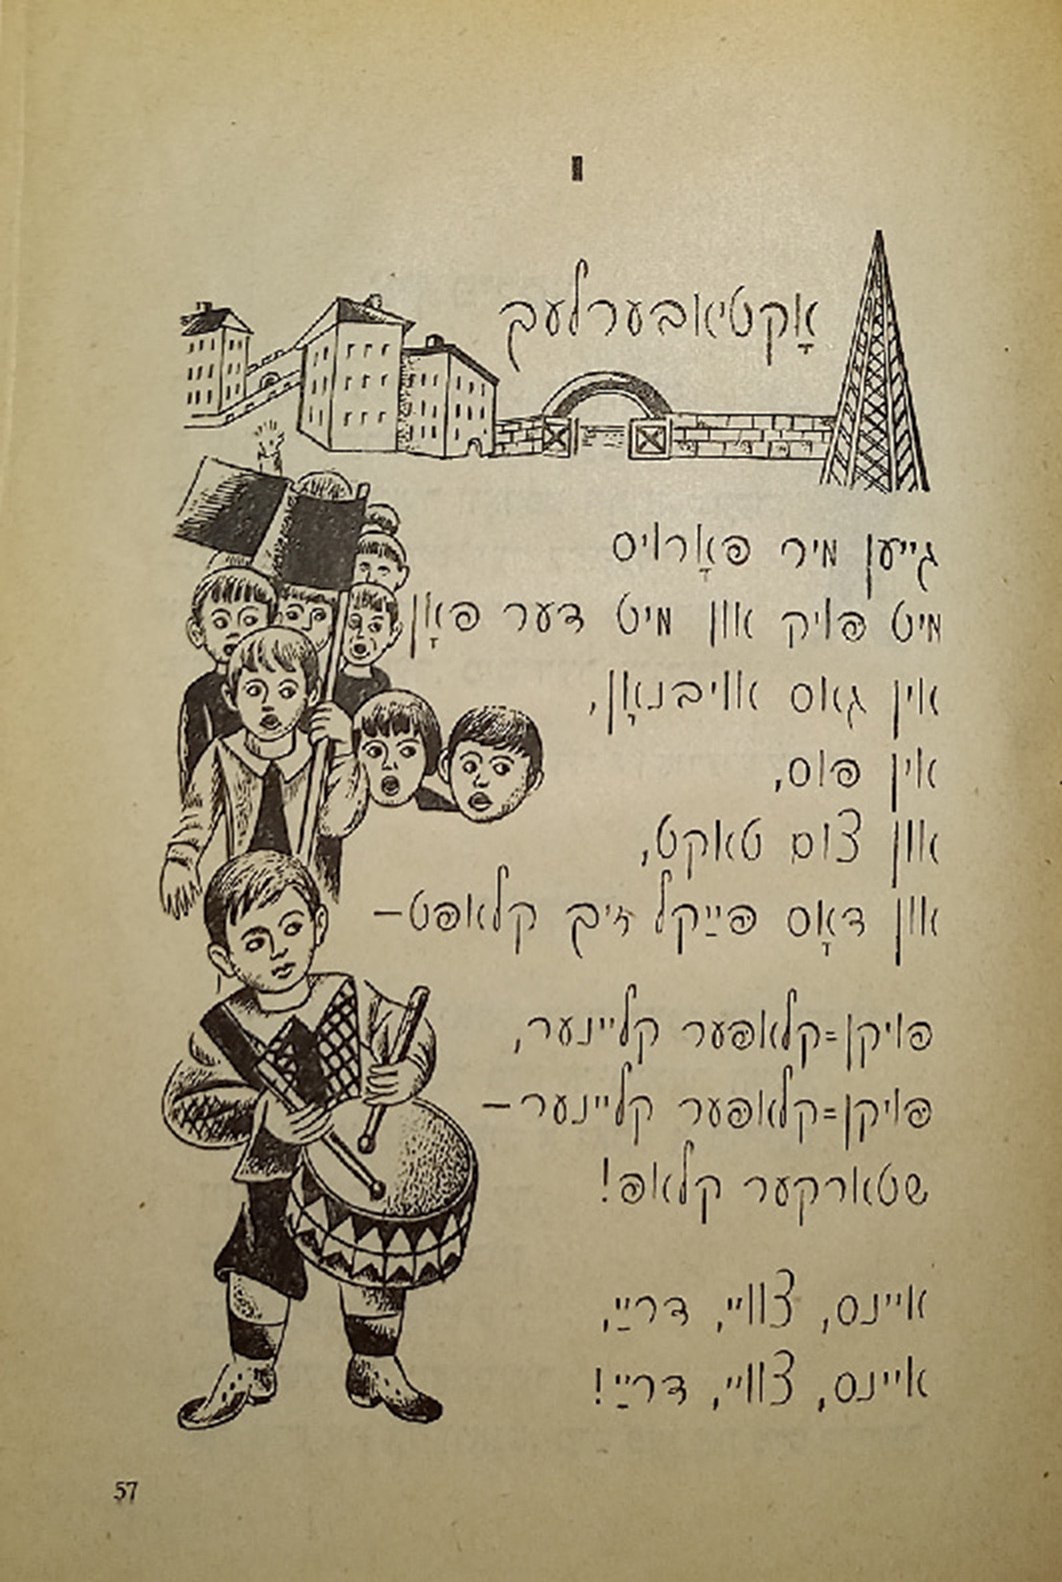 I
אָקטיאבערלעך
גייען מיר פאָרויס
מיט פויק און מיט דער פאָן
אין גאס אויבנאָן,
אין פוס,
און צום טאקט,
און דאָס פּײַקל זיך קלאפט—
פויקן=קלאפער קליינער,
פויקן=קלאפער קליינער—
שטארקער קלאפ!
איינס, צוויי, דרײַ,
איינס, צוויי, דרײַ!
57